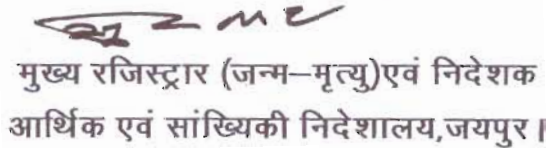 मुख्य रजिस्ट्रार (जन्म–मृत्यु)एवं निदेशक
आर्थिक एवं सांख्यिकी निदेशालय,जयपुर।